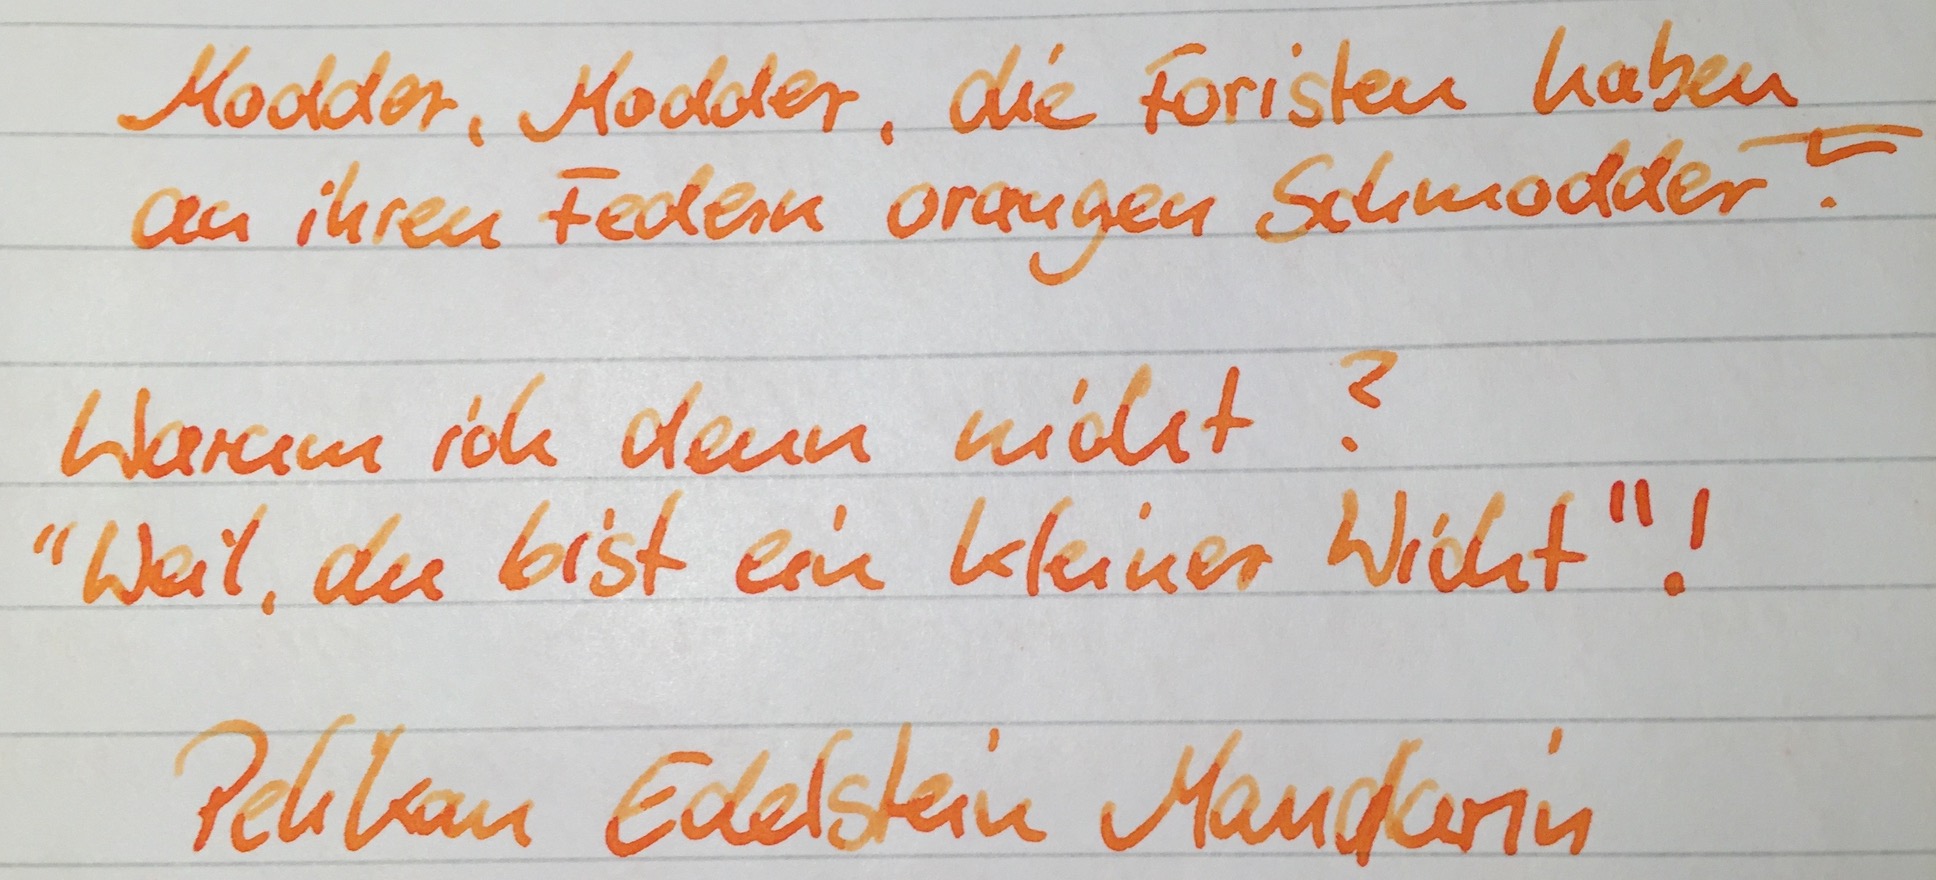 Modder, Modder, die Foristen haben
an ihren Federn orangen Schmodder!
Warum ich denn nicht?
"Weil, du bist ein kleiner Wicht"!
Pelikan Edelstein Mandarin